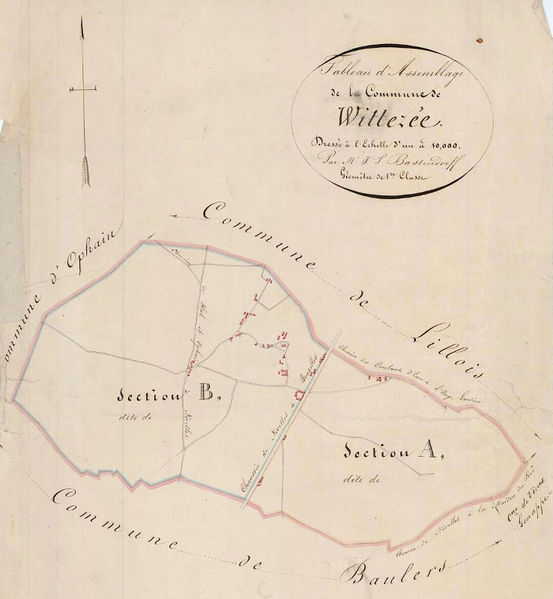 Tableau d'Assemblage
de la Commune de
Wittezée.
Dressé à l'Echelle d'un à 10,000.
Par M. J. S. Bastendorff
Géomètre de 1re Classe
Commune d'Ophain
Commune de Lillois
Section B,
dite de
Chaussée de Nivelles à Bruxelles
Section A,
dite de
Chemin de Nivelles à la
Genappe
Commune de Baulers